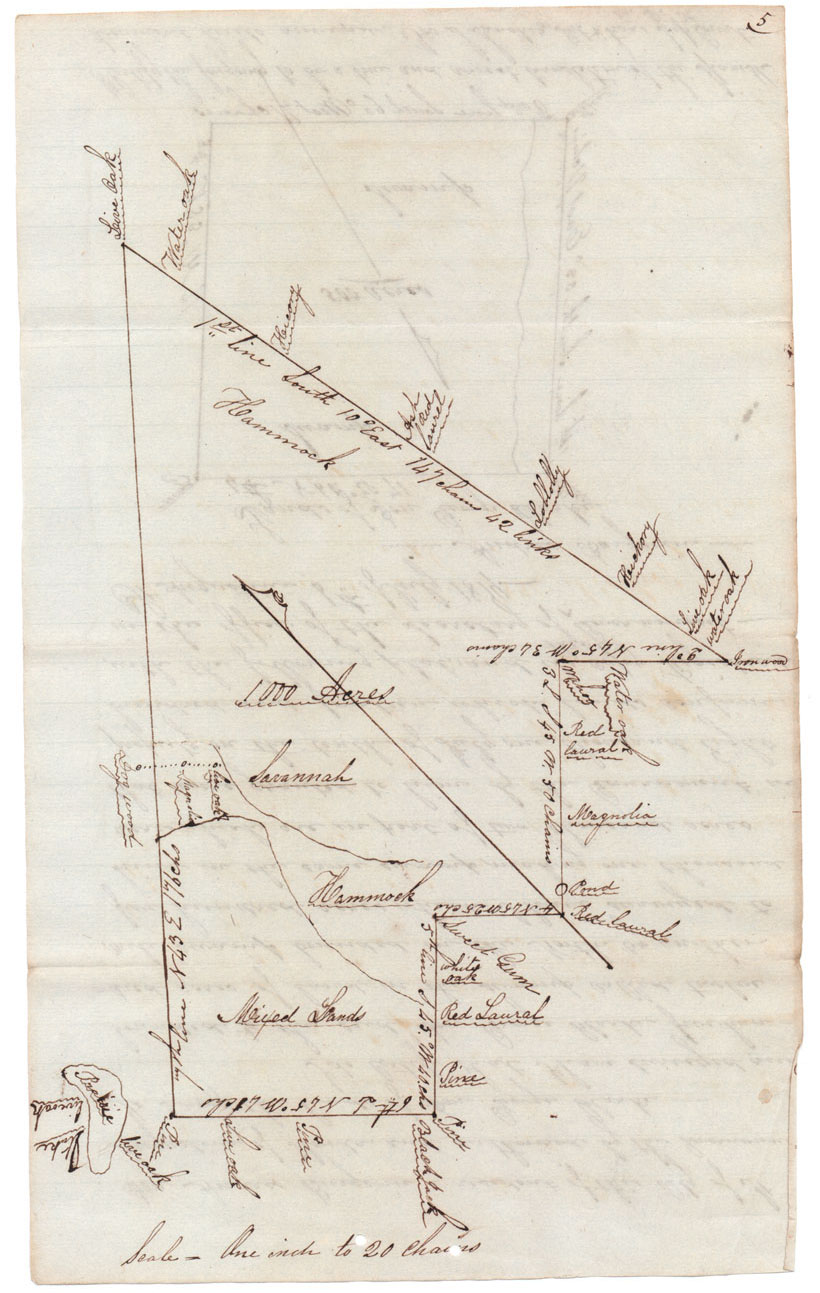 5
Live Oak
Water oak
Hicory
1st line South 10° East 147 chains 42 links
Hammock
Ash
Red
Laurel
Loblolly
Hickory
Live oak
water oak
Ironwood
2d line N 45° W 34 chains
Water oak
3 L S 45 W 50 chains
Red
laural
1,000 Acres
Savannah
Magnolia
Live oak
Magnolia
Hammock
Pond
4 N 45 W 25 chs
Red laural
Sweet Gum
White
oak
5th line S 45° W 38 chs
Red Laural
Mixed Lands
Pine
7th Line N 43° E 176 chs
6th L N 45° W 48 chs
Prairie
live oak
Pine
Live oak
Pine
Pine
Black Jack
Stake
Scale = One inch to 20 chains